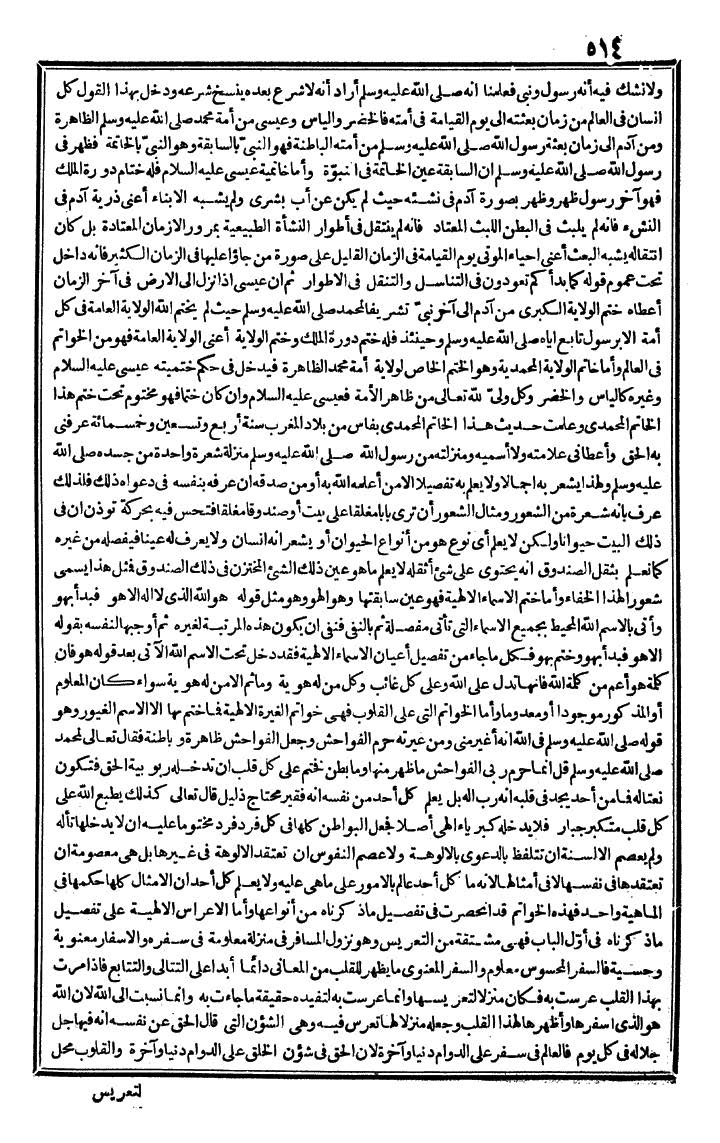 ٥١٤
ولا نشك فيه أنه رسول ونبى فعلمنا انه صلى الله عليه وسلم أراد أنه لا شرع بعده ينسخ شرعه ودخل بهذا القول كل
انسان فى العالم من زمان بعثته الى يوم القيامة فى أمته فالخضر والياس وعيسى من أمة محمد صلى الله عليه وسلم الظاهرة
ومن آدم الى زمان بعثة رسول الله صلى الله عليه وسلم من أمته الباطنة فهو النبىّ بالسابقة وهو النبىّ بالخاتمة فظهر فى
رسول الله صلى الله عليه وسلم ان السابقة عين الخاتمة فى النبوّة وأما خاتمية عيسى عليه السلام فله ختام دورة الملك
فهو آخر رسول ظهر وظهر بصورة آدم فى نشئه حيث لم يكن عن أب بشرى ولم يشبه الابناء أعنى ذرية آدم فى
النشء فانه لم يلبث فى البطن اللبث المعتاد فانه لم ينتقل فى أطوار النشأة الطبيعية بمرور الازمان المعتادة بل كان
انتقاله يشبه البعث أعنى احياء الموتى يوم القيامة فى الزمان القليل على صورة من جاؤا عليها فى الزمان الكثير فانه داخل
تحت عموم قوله كما بدأكم تعودون فى التناسل والتنقل فى الاطوار ثم ان عيسى اذا نزل الى الارض فى آخر الزمان
أعطاه ختم الولاية الكبرى من آدم الى آخر نبىّ تشريفا لمحمد صلى الله عليه وسلم حيث لم يختم الله الولاية العامة فى كل
أمة الا برسول تابع اياه صلى الله عليه وسلم وحينئذ فله ختم دورة الملك وختم الولاية أعنى الولاية العامة فهو من الخواتم
فى العالم وأما خاتم الولاية المحمدية وهو الختم الخاص لولاية أمة محمد الظاهرة فيدخل فى حكم ختميته عيسى عليه السلام
وغيره كالياس والخضر وكل ولىّ لله تعالى من ظاهر الأمة فعيسى عليه السلام وان كان ختما فهو مختوم تحت ختم هذا
الخاتم المحمدى وعلمت حديث هذا الخاتم المحمدى بفاس من بلاد المغرب سنة أربع وتسعين وخمسمائة عرفنى
به الحق وأعطانى علامته ولا أسميه ومنزلته من رسول الله صلى الله عليه وسلم منزلة شعرة واحدة من جسده صلى الله
عليه وسلم ولهذا يشعر به اجمالا ولا يعلم به تفصيلا الا من أعلمه الله به أو من صدقه ان عرفه بنفسه فى دعواه ذلك فلذلك
عرف بانه شعرة من الشعور ومثال الشعور أن ترى بابا مغلقا على بيت أو صندوقا مغلقا فتحس فيه بحركة توذن ان فى
ذلك البيت حيوانا ولكن لا يعلم أى نوع هو من أنواع الحيوان أو يشعر انه انسان ولا يعرف له عينا فيفصله من غيره
كما نعلم بثقل الصندوق انه يحتوى على شئ أثقله لا يعلم ما هو عين ذلك الشئ المختزن فى ذلك الصندوق فمثل هذا يسمى
شعورا لهذا الخفاء وأما ختم الاسماء الالهية فهو عين سابقتها وهو الهو وهو مثل قوله هو الله الذى لا اله الا هو فبدأ بهو
وأتى بالاسم الله المحيط بجميع الاسماء التى تأتى مفصلة ثم بالنفى فنفى ان يكون هذه المرتبة لغيره ثم أوجبها لنفسه بقوله
الا هو فبدأ بهو وختم بهو فكل ما جاء من تفصيل أعيان الاسماء الالهية فقد دخل تحت الاسم الله الآتى بعد قوله هو فان
كلمة هو أعم من كلمة الله فانها تدل على الله وعلى كل غائب وكل من له هوية وما ثم الا من له هوية سواء كان المعلوم
أو المذكور موجودا أو معدوما وأما الخواتم التى على القلوب فهى خواتم الغيرة الالهية فما ختم بها الا الاسم الغيور وهو
قوله صلى الله عليه وسلم فى الله انه أغير منى ومن غيرته حرم الفواحش وجعل الفواحش ظاهرة وباطنة فقال تعالى لمحمد
صلى الله عليه وسلم قل انما حرم ربى الفواحش ما ظهر منها وما بطن فختم على كل قلب ان تدخله ربوبية الحق فتكون
نعتا له فما من أحد يجد فى قلبه انه رب اله بل يعلم كل أحد من نفسه انه فقير محتاج ذليل قال تعالى كذلك يطبع الله على
كل قلب متكبر جبار فلا يدخله كبرياء الهى أصلا فجعل البواطن كلها فى كل فرد فرد مختوما عليه ان لا يدخلها تأله
ولم يعصم الالسنة ان تتلفظ بالدعوى بالالوهة ولا عصم النفوس ان تعتقد الالوهة فى غيرها بل هى معصومة ان
تعتقدها فى نفسها لا فى أمثالها لانه ما كل أحد عالم بالامور على ما هى عليه ولا يعلم كل أحد ان الامثال كلها حكمها فى
الماهية واحد فهذه الخواتم قد انحصرت فى تفصيل ما ذكرناه من أنواعها وأما الاعراس الالهية على تفصيل
ما ذكرناه فى أوّل الباب فهى مشتقة من التعريس وهو نزول المسافر فى منزلة معلومة فى سفره والاسفار معنوية
وحسية فالسفر المحسوس معلوم والسفر المعنوى ما يظهر للقلب من المعانى دائما أبدا على التتالى والتتابع فاذا مرت
بهذا القلب عرست به فكان منزلا لتعريسها وانما عرست به لتفيده حقيقة ما جاءت به وانما نسبت الى الله لان الله
هو الذى اسفرها وأظهرها لهذا القلب وجعله منزلا لها تعرس فيه وهى الشؤن التى قال الحق عن نفسه انه فيها جل
جلاله فى كل يوم فالعالم فى سفر على الدوام دنيا وآخرة لان الحق فى شؤن الخلق على الدوام دنيا وآخرة والقلوب محل
لتعريس